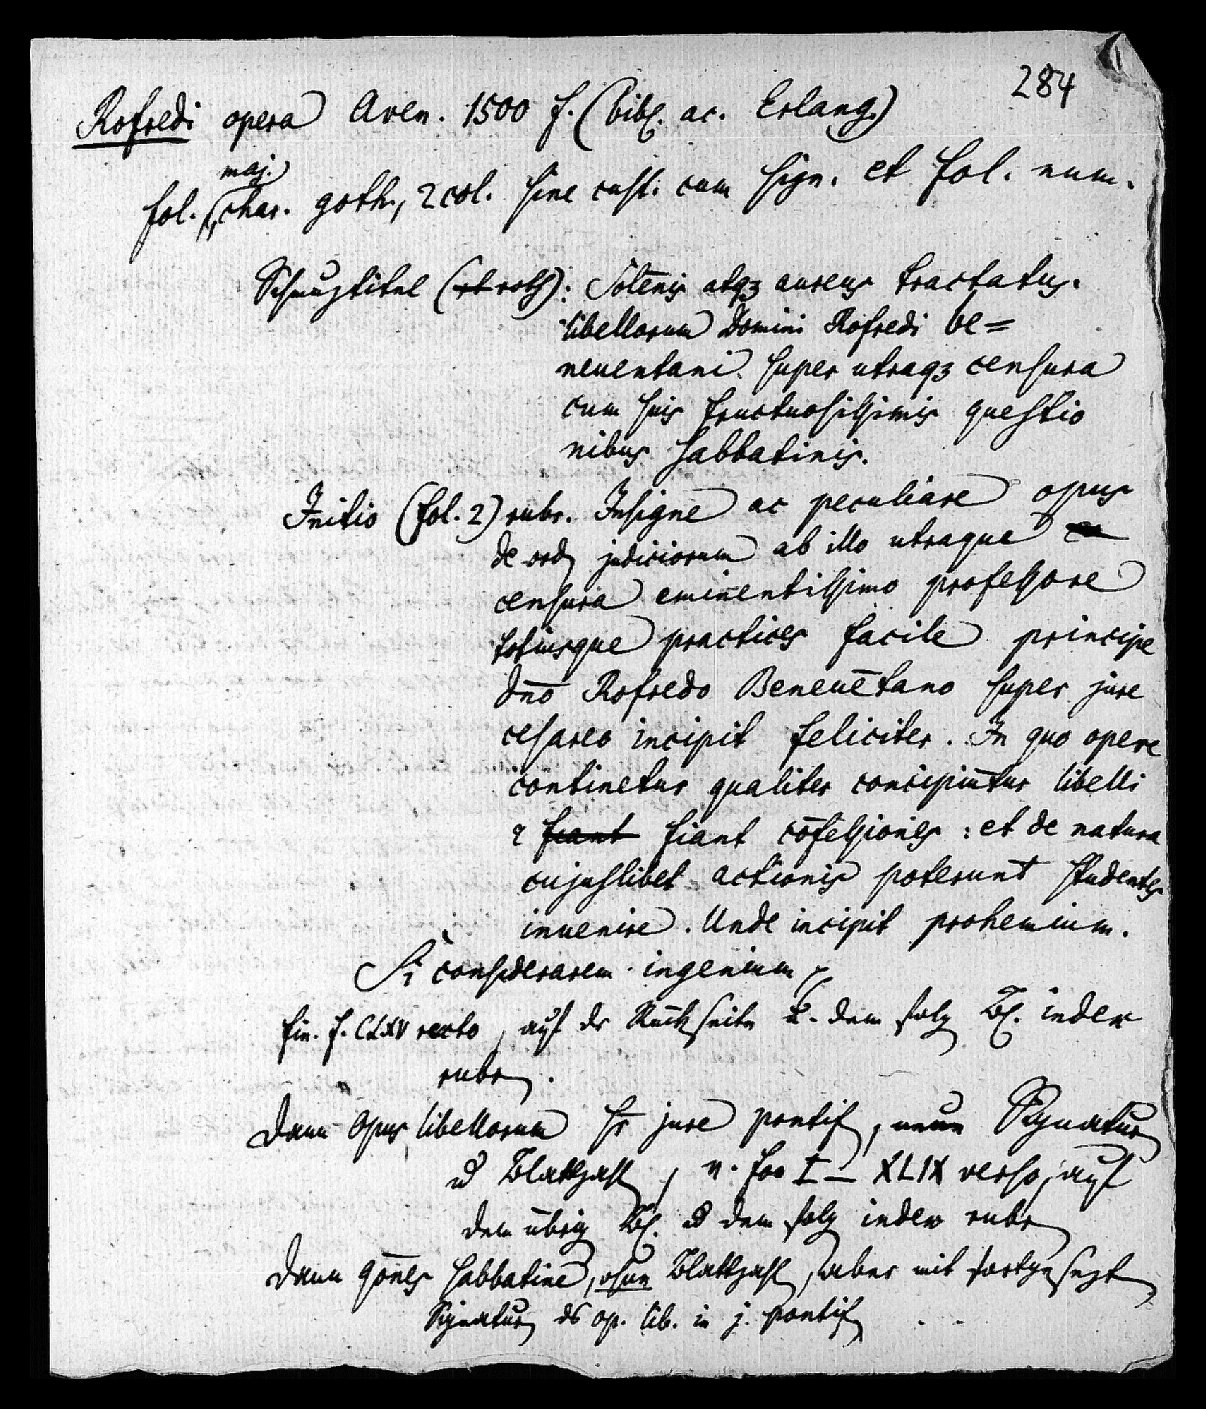 284
Rofredi opera Aven. 1500 f. (bibl. ac. Erlang.)
maj.
fol. char. goth., 2 col. sine cust. cum sign. et fol. num.
Schmuztitel (roth): Solēnis atqz aureus tractatus.
libellorum Domini Rofredi be=
neuentani. super utraqz censura
cum suis fructuosissimis questio
nibus sabbatinis.
Initio (fol. 2) rubr. Insigne ac peculiare opus
de ord judiciorum ab illo utraque
censura eminentissimo professore
totiusque practices facile principe
dn̄o Rofredo Beneuētano super jure
cesareo incipit feliciter. In quo opere
continetur qualiter concipiūtur libelli
⁊ fiant fiant cōfessiones : et de natura
cujuslibet actionis poterunt studentes
inuenire. Unde incipit prohemium.
Si considerarem ingenium
fin. f. CLXV recto, auf dr Rückseite u. dem folg Bl. index
rubr.
Dann Opus libellorum sr jure pontif, neue Signatur
u Blattzahl, v. foo I – XLIX verso, auf
dem übrig Bl. u dem folg index rubr
Dann qōnes sabbatine, ohne Blattzahl, aber mit fortgesezt
Signatur ds op. lib. in j. pontif